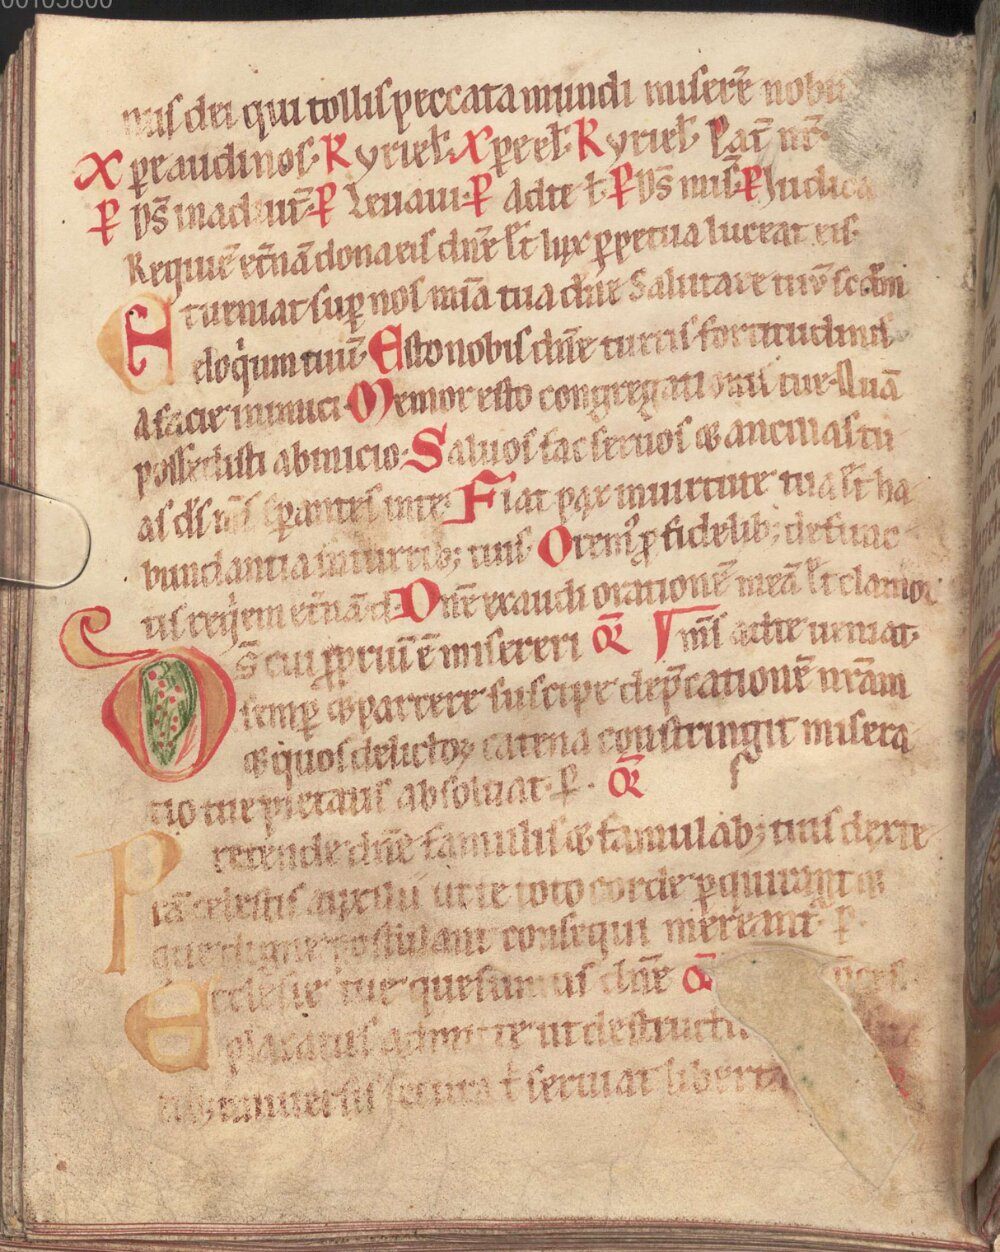 00105800
nus dei qui tollis peccata mundi miserē nobis
Xpe audi nos· Kyriel̄· Xpeel̄· Kyriel̄· Pat̄ nr̄·
P̄ Ds̄ in adiut̄· P̄ Leuaui· P̄ Ad te l̄· P̄ Ds̄ mis̄· P̄ Iudica
Requiē et̄nā dona eis dn̄e &̄ lux ꝑpetua luceat eis·
Et ueniat suꝑ nos mīa tua dn̄e Salutare tuū scd̄m
eloq̇um tuū· Esto nobis dn̄e turris fortitudinis
a facie inimici· Memor esto congregationis tue· Quā
possedisti ab inicio· Saluos fac seruos & ancillas tu
as ds̄ ms̄ sꝑantes in te· Fiat pax in uirtute tua &̄ ha
bundantia in turrib; tuis· Orem᷒ ꝓ fidelib; defunc
tis req̇em et̄nā d· Dn̄e exaudi orationē meā &̄ clamor
Ds̄ cui ꝓpriū ē misereri OR̄ ms̄ ad te ueniat·
semꝑ & parcere suscipe dep̄cationē nr̄am
& q̇uos delictoꝝ catena constringit misera
tio tue pietatis absoluat· ꝑ· OR̄
Pretende dn̄e famulis & famulab; tuis dexte
rā celestis auxilii ut te toto corde ꝑquirant &
que digne postulant consequi mereant̄· ꝑ·
Ecclesie tue quesumus dn̄e p̄ces
placatus admitte ut destructis
uniuersis secura t̄ seruiat liberta